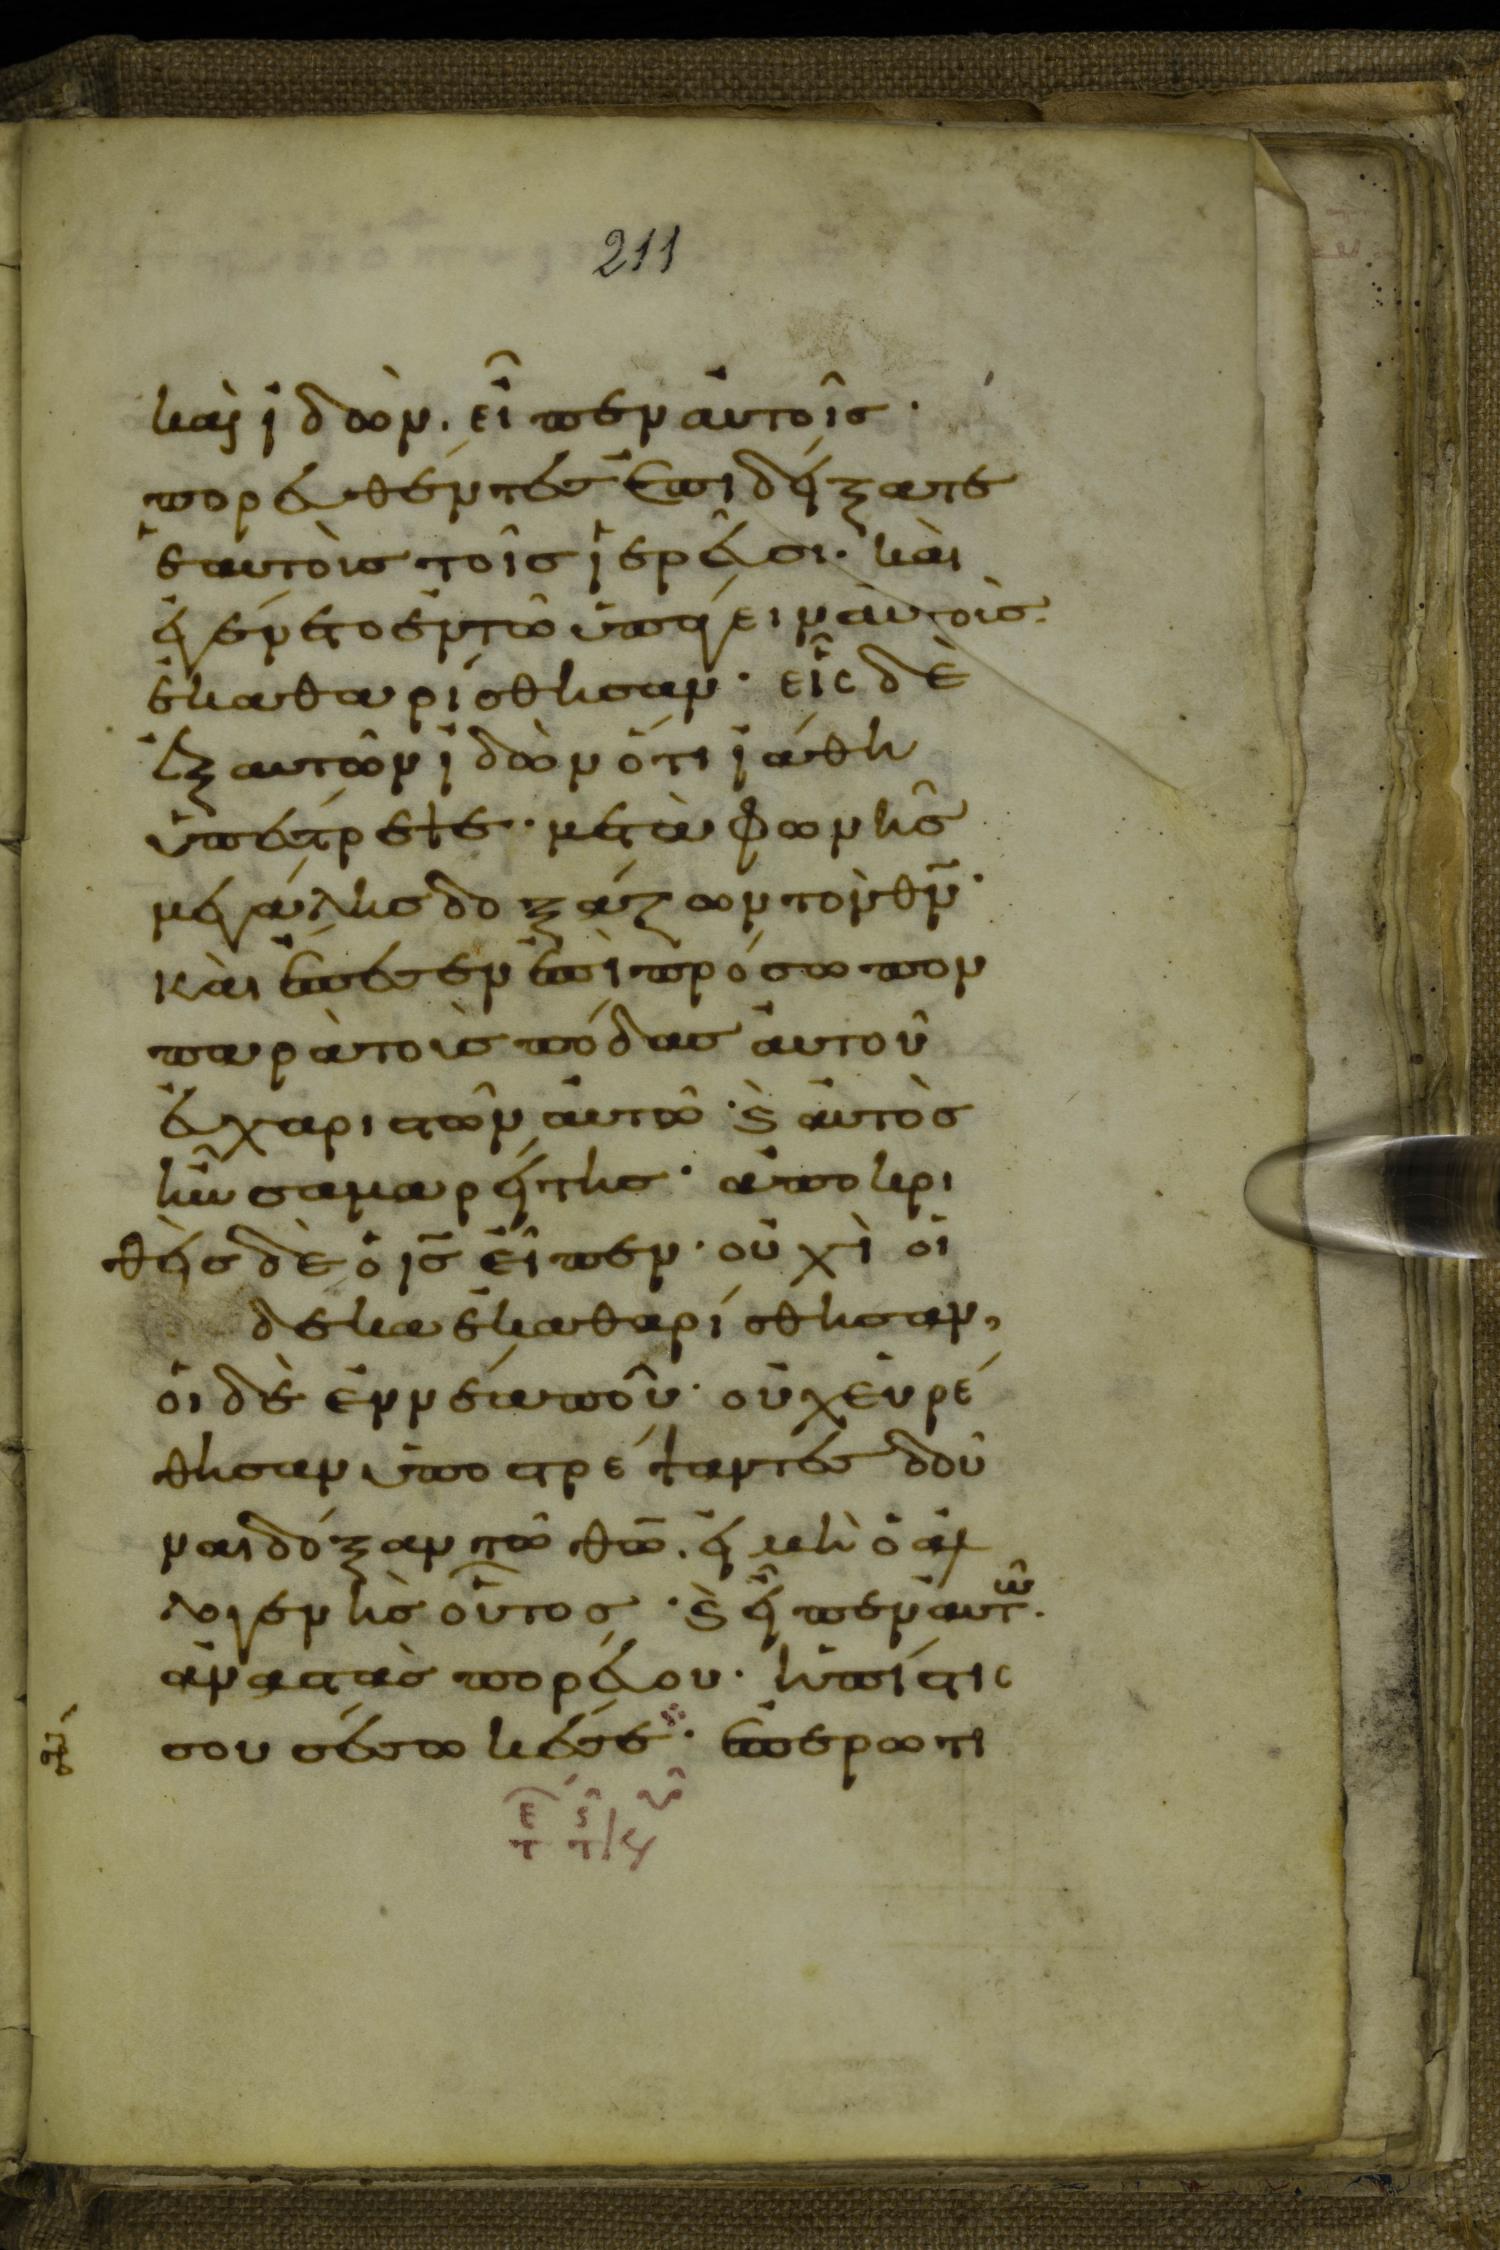 211
καὶ ἰδὼν. εἶπεν αὐτοῖς·
πορευθέντες ἐπιδείξατε
ἑαυτοὺς τοῖς ἱερεῦσι· καὶ
ἐγένετο ἐν τῶ ὑπάγειν αὐτοὺς.
ἐκαθαρίσθησαν· εἷς δὲ
ἐξ αὐτῶν ἰδὼν ὅτι ἰάθη
ὑπέστρεψε· μετὰ φωνῆς
μεγάλης δοξάζων τὸν θν̅·
καὶ ἔπεσεν ἐπὶ πρόσωπον
παρὰ τοὺς πόδας αὐτοῦ
εὐχαριστῶν αὐτῶ· ϗ̀ αὐτὸς
ἦν σαμαρείτης· ἀποκρι
θεὶς δὲ ὁ ις̅ εἶπεν· οὐχὶ οἱ
δεκα ἐκαθαρίσθησαν,
οἱ δὲ ἐννέα ποῦ· οὐχ εὑρέ
θησαν ὑποστρέψαντες δοῦ
ναι δόξαν τῶ θω̅. εἰ μὴ ὁ ἀλ
λογενὴς οὗτος· ϗ̀ εἶπεν αὐτῶ.
ἀναστὰς πορεύου· ἡ πίστις
σου σέσωκέ σε· ἐπερωτι